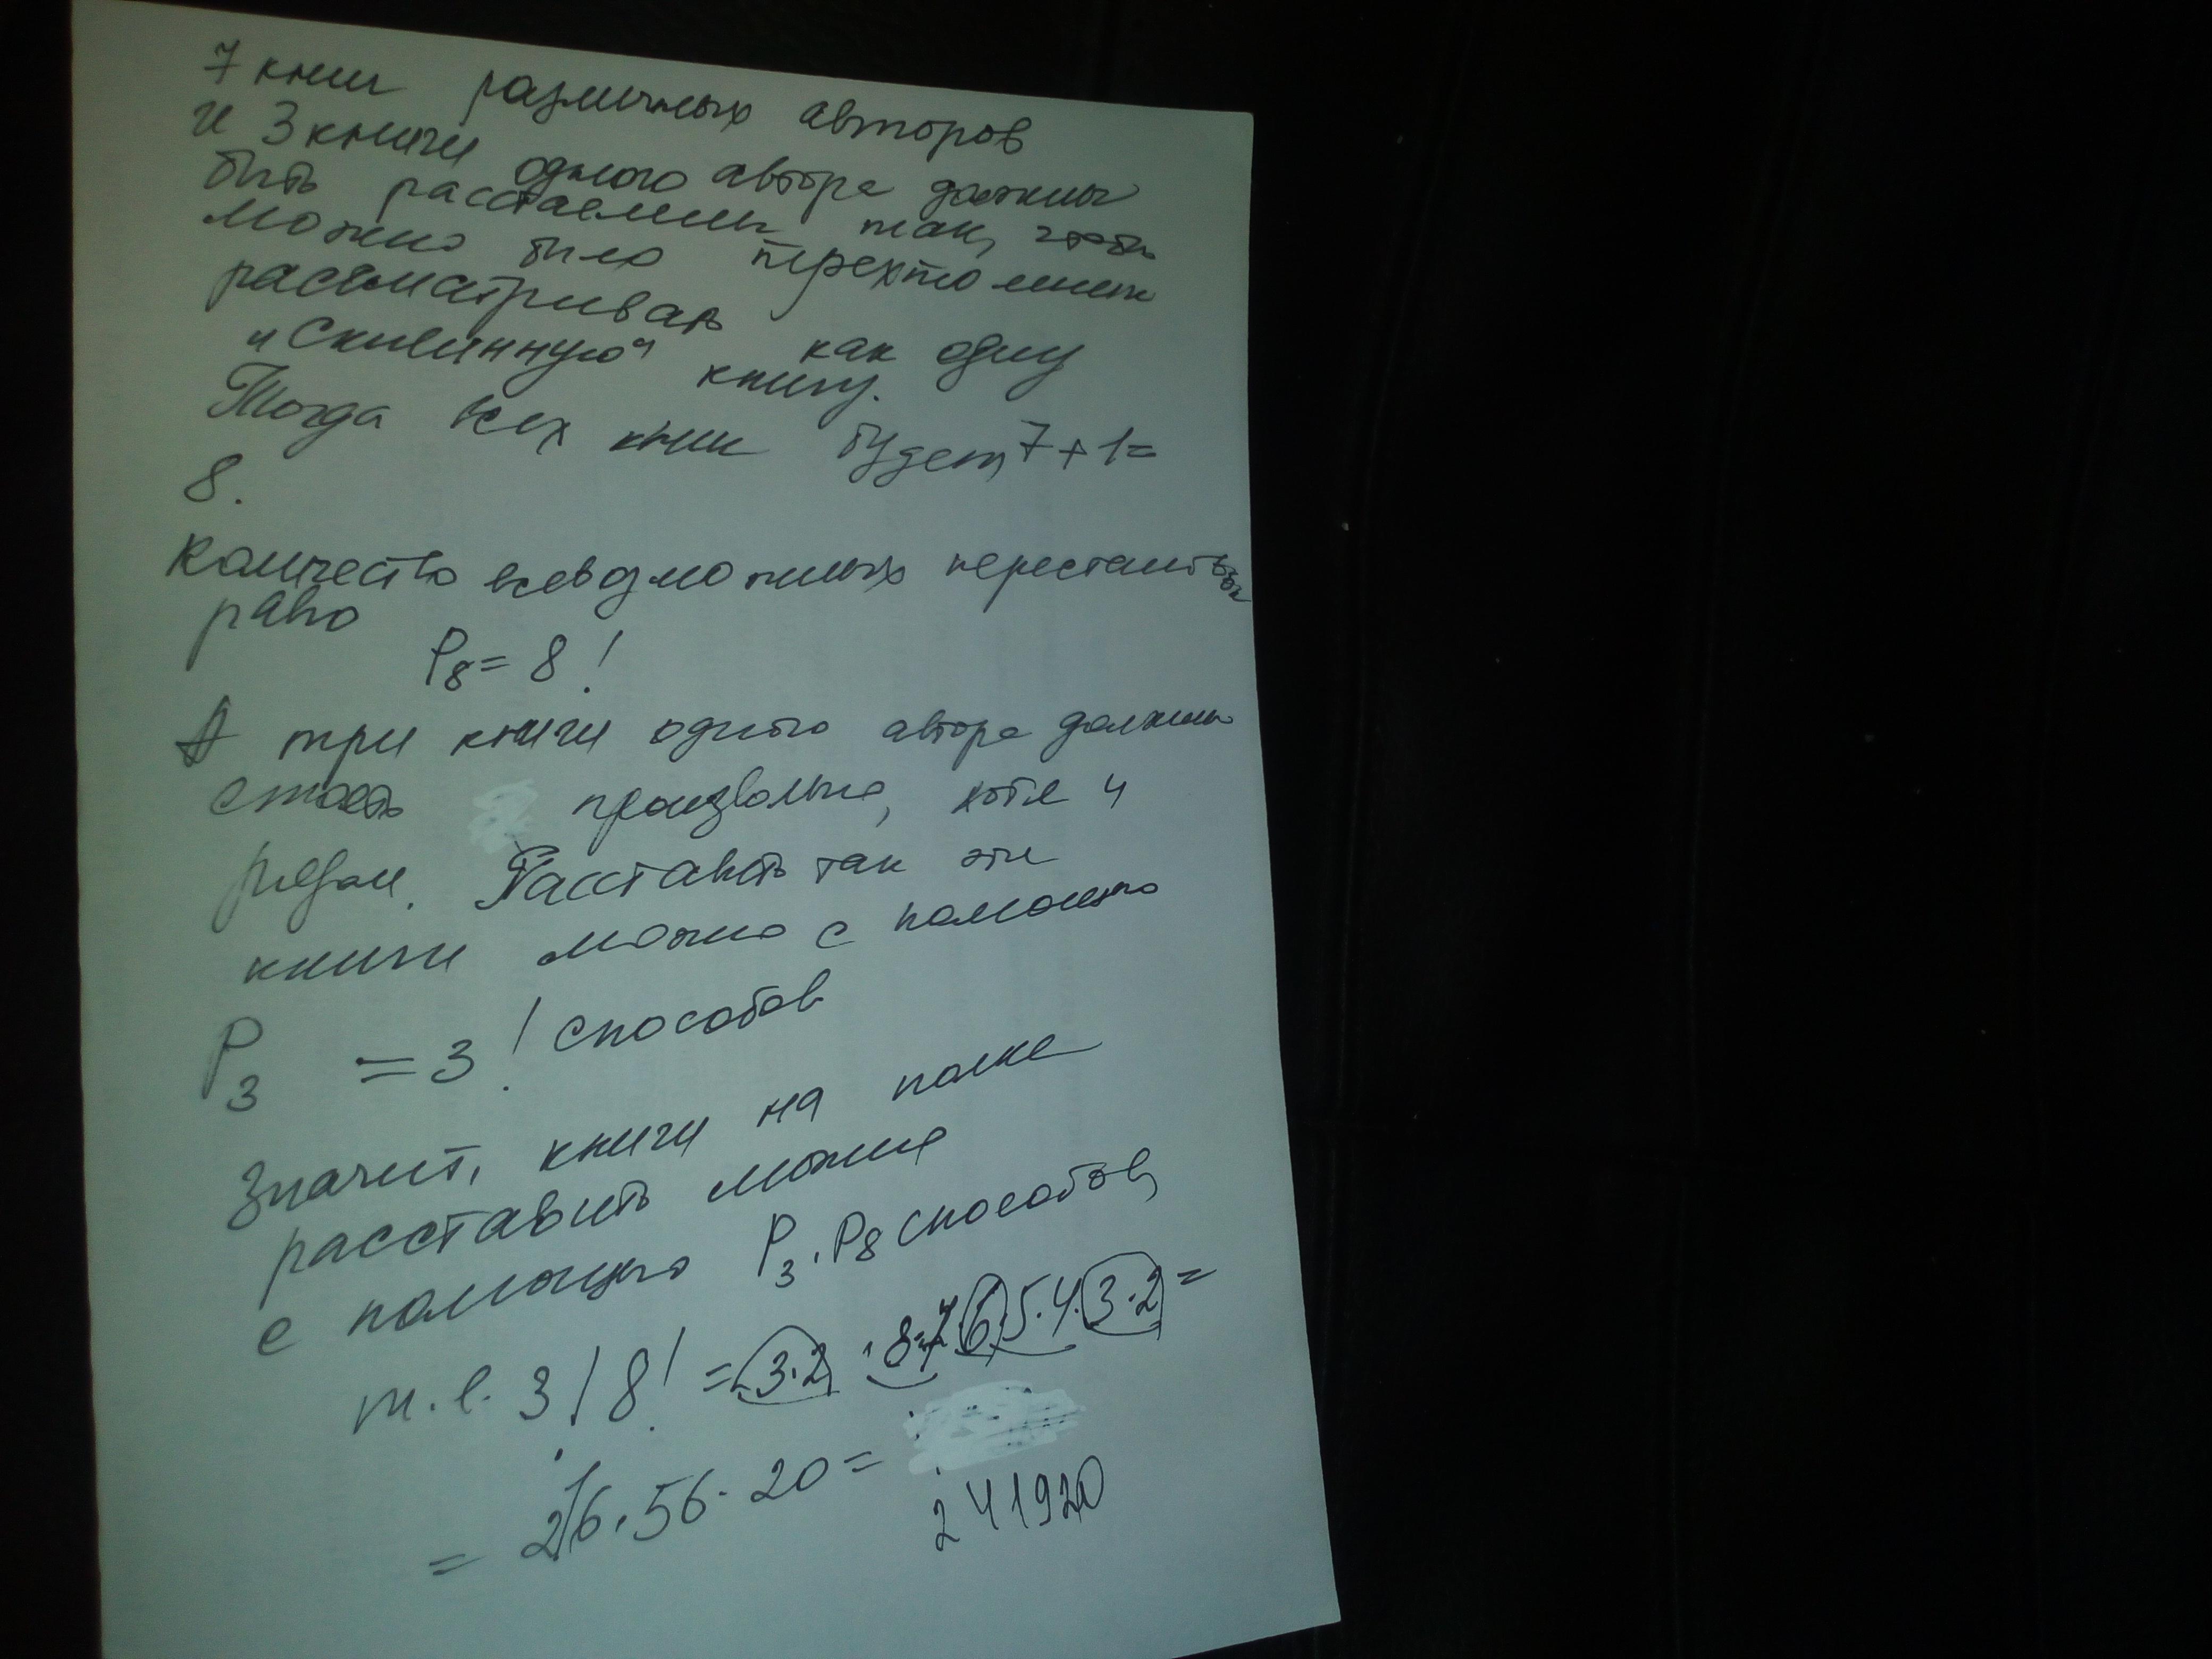 7 книг различных авторов
и 3 книги одного автора должны
быть расставлены так, чтобы
можно было трехтомник
рассматривать как одну
"склеинную" книгу.
Тогда всех книг будет 7+1=
8.
Количество всевозможных перестановок
равно
P₈ = 8!
А три книги одного автора должны
стоять произвольно, хотя и
рядом. Расставить так эти
книги можно с помощью
P₃ = 3! способов
Значит, книги на полке
расставить можно
с помощью P₃·P₈ способов,
т.е. 3!8! = 3·2·8·7·6·5·4·3·2=
= 216·56·20=
241920